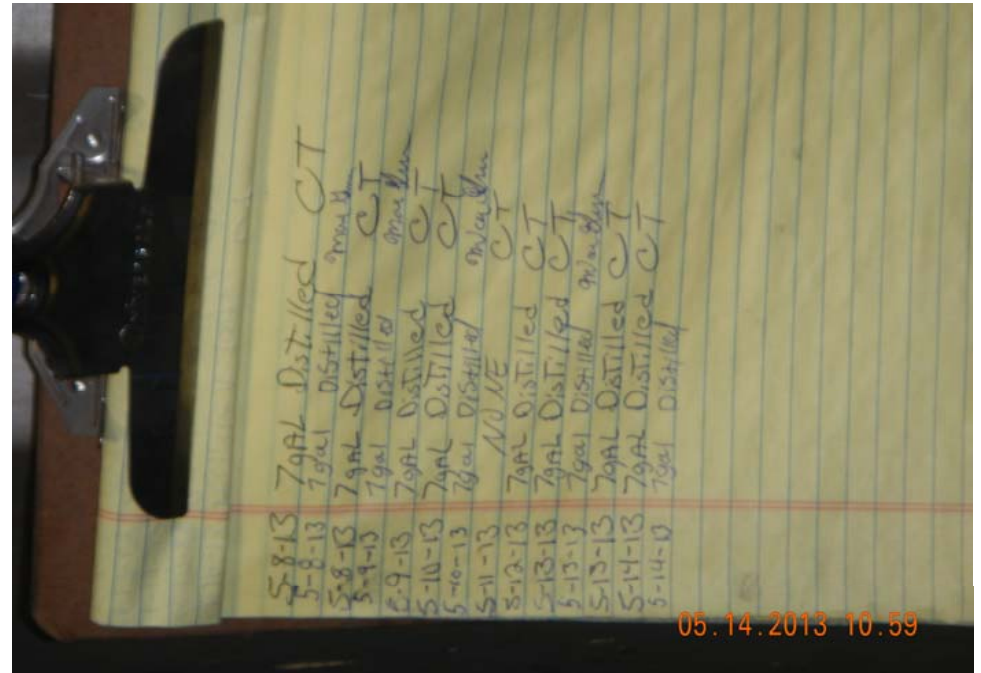 5-8-13 7gAL DisTilled CT
5-8-13 7gal Distilled
5-8-13 7gAL DisTilled CT
5-9-13 7gal Distilled
5-9-13 7gAL DisTilled CT
5-10-13 7gAL DisTilled CT
5-10-13 7gal Distilled
5-11-13 NONE CT
5-12-13 7gAL DisTilled CT
5-13-13 7gAL DisTilled CT
5-13-13 7gal Distilled
5-13-13 7gAL DisTilled CT
5-14-13 7gAL DisTilled CT
5-14-13 7gal Distilled
05.14.2013 10.59